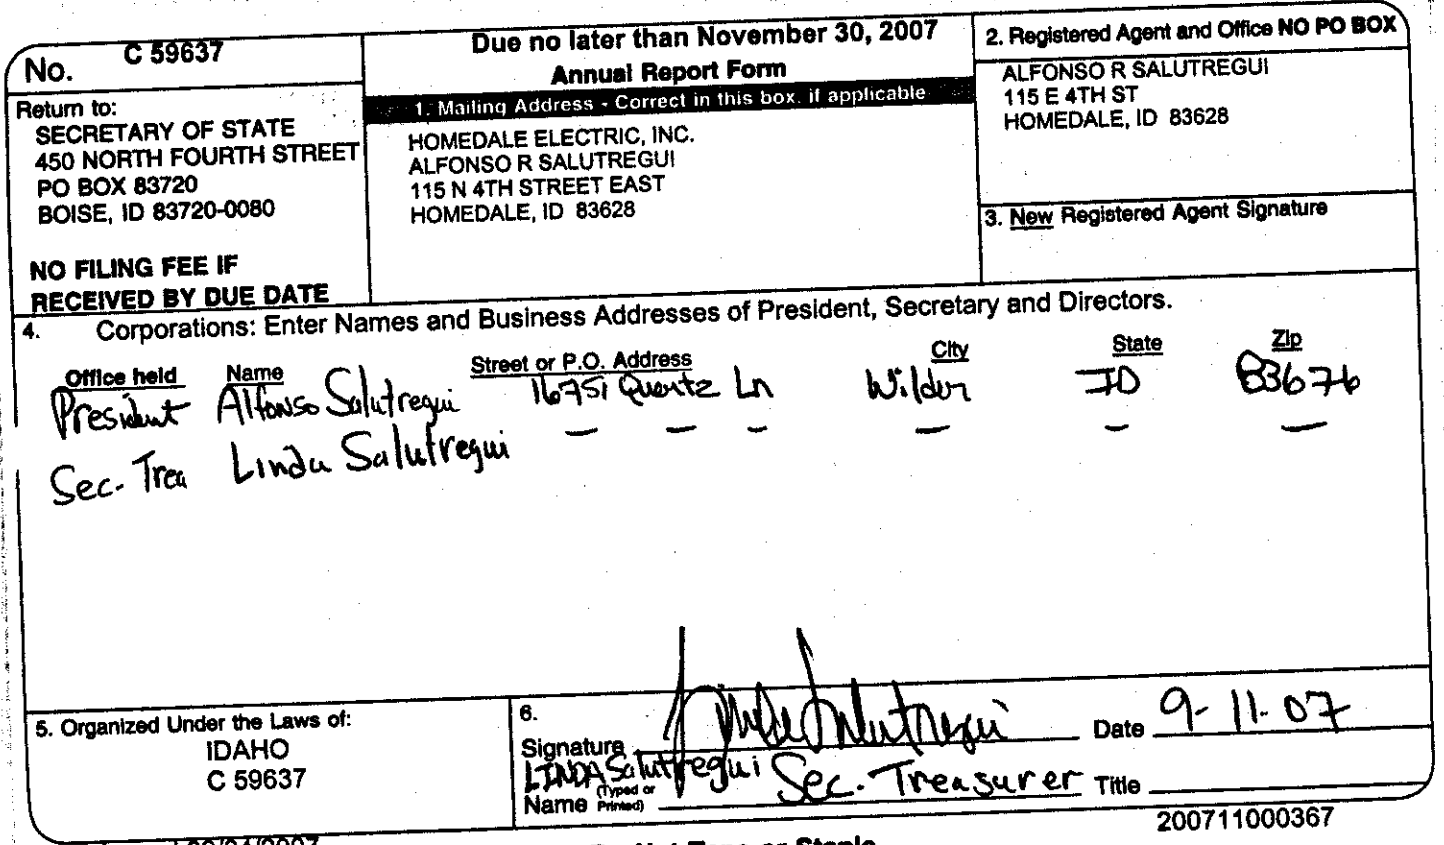 No. C 59637
Return to:
SECRETARY OF STATE
450 NORTH FOURTH STREET
PO BOX 83720
BOISE, ID 83720-0080
NO FILING FEE IF
RECEIVED BY DUE DATE
Due no later than November 30, 2007
Annual Report Form
1. Mailing Address - Correct in this box, if applicable
HOMEDALE ELECTRIC, INC.
ALFONSO R SALUTREGUI
115 N 4TH STREET EAST
HOMEDALE, ID 83628
2. Registered Agent and Office NO PO BOX
ALFONSO R SALUTREGUI
115 E 4TH ST
HOMEDALE, ID 83628
3. New Registered Agent Signature
4. Corporations: Enter Names and Business Addresses of President, Secretary and Directors.
Office held Name Street or P.O. Address City State Zip
President Alfonso Salutregui 16751 Quartz Ln Wilder ID 83676
Sec. Trea Linda Salutregui — — — — — —
5. Organized Under the Laws of:
IDAHO
C 59637
6.
Signature Linda Salutregui Date 9-11-07
LINDA Salutregui Sec. Treasurer Title
Name (Typed or Printed)
200711000367